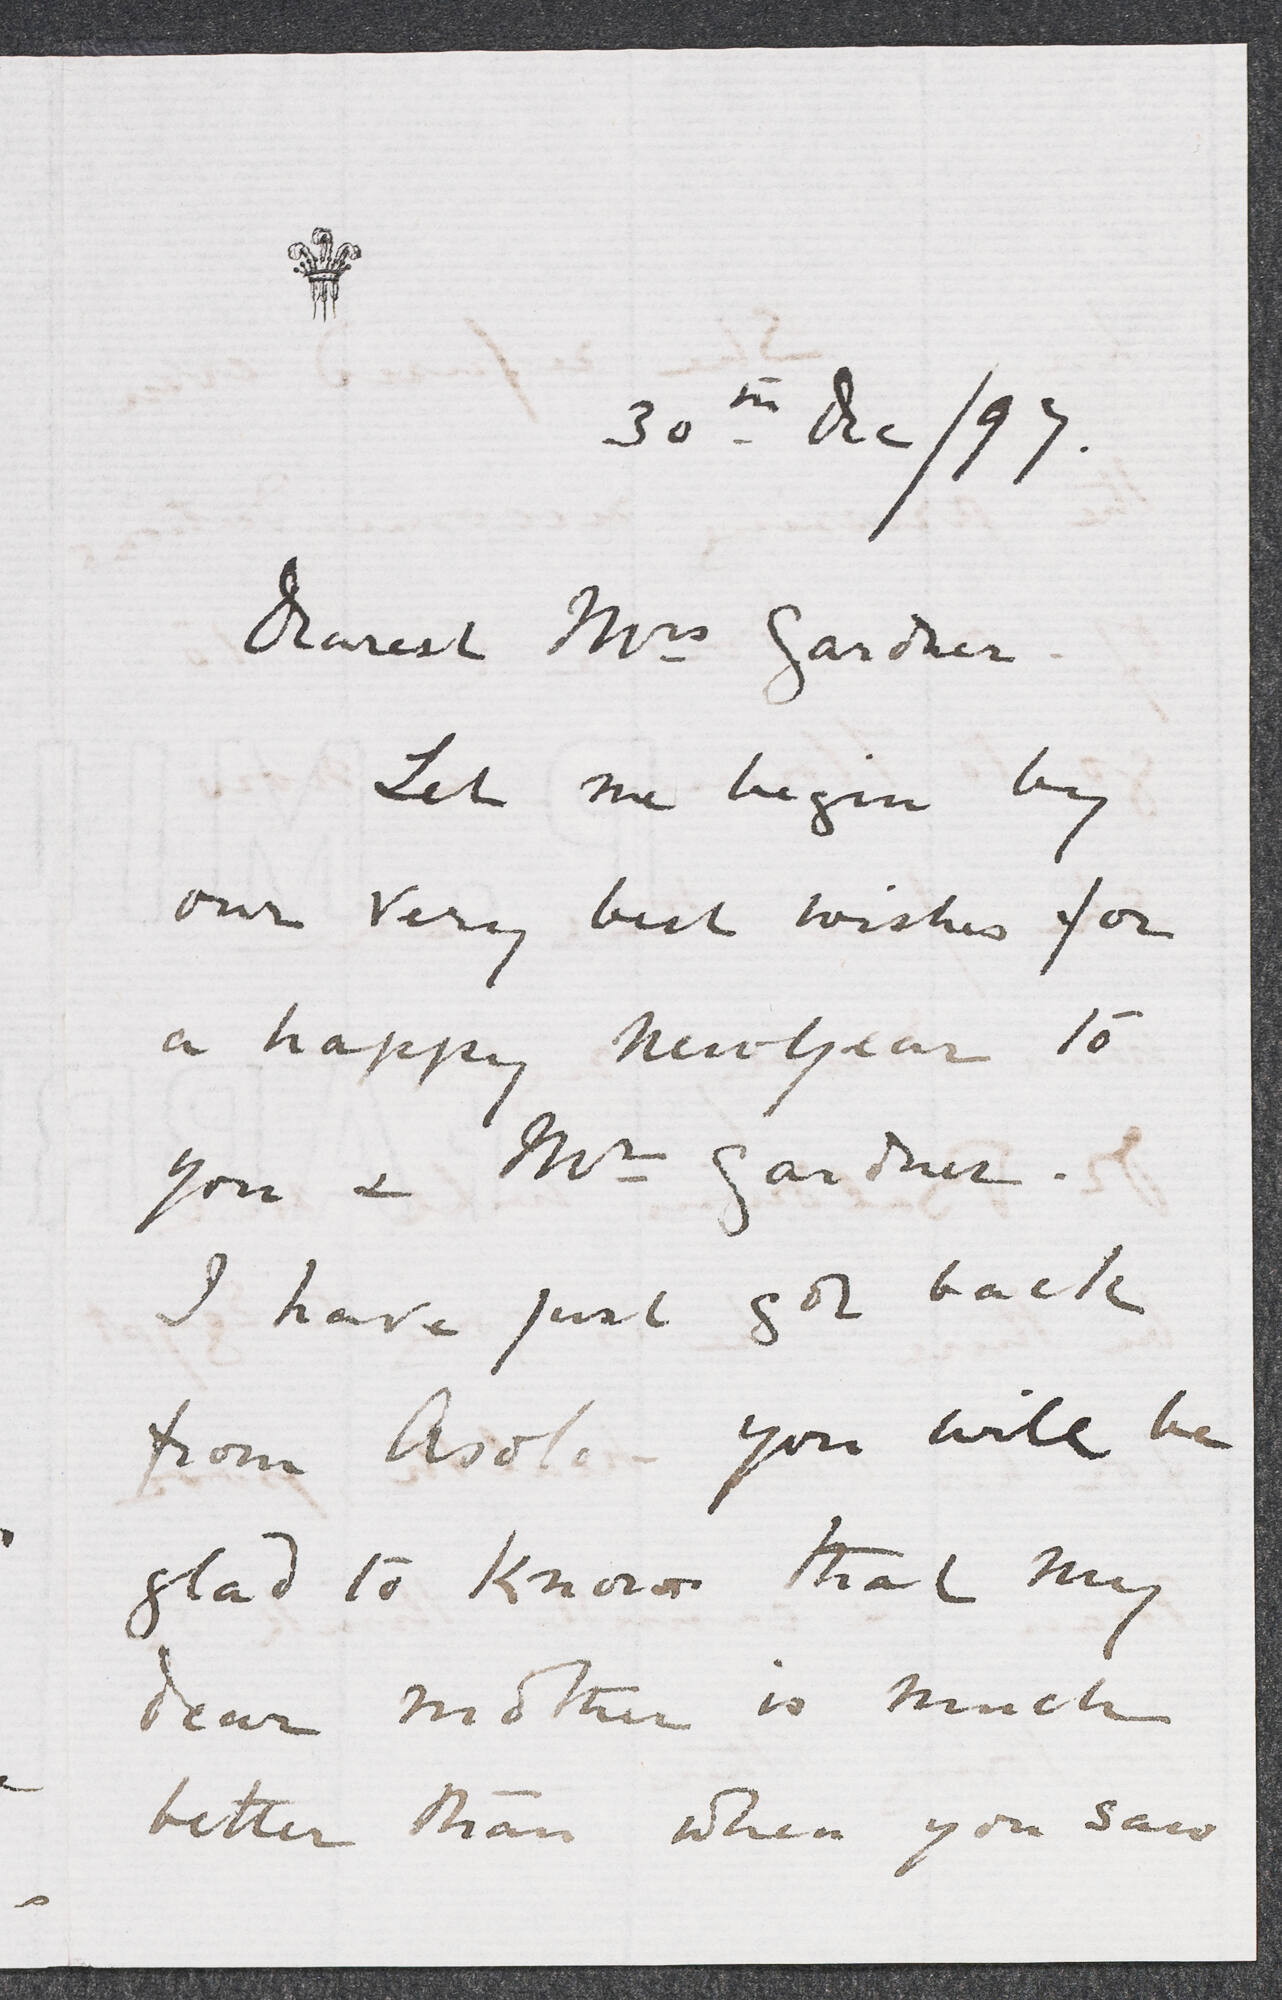 30th Dec/97.
Dearest Mrs Gardner.
Let me begin by
our very best wishes for
a happy New Year to
you & Mr Gardner.
I have just got back
from Asolo - you will be
glad to know that my
dear mother is much
better than when you saw